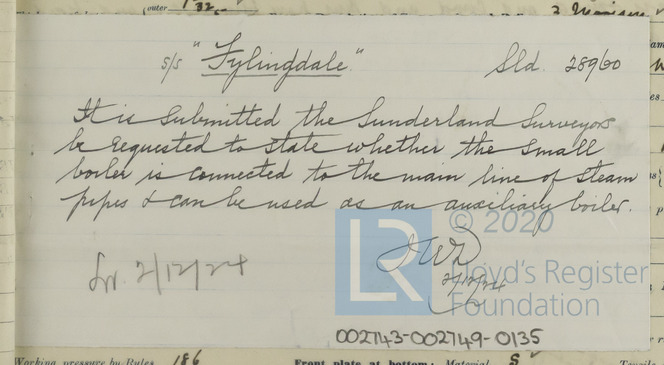 outer
s/s "Fylingdale" Sld. 28960
It is submitted the Sunderland Surveyors
be requested to state whether the small
boiler is connected to the main line of steam
pipes & can be used as an auxiliary boiler.
2/12/24
Lr. 2/12/24
LR © 2020
Lloyd's Register
Foundation
002743-002749-0135
Working pressure by Rules 186 Front plate at bottom: Material S